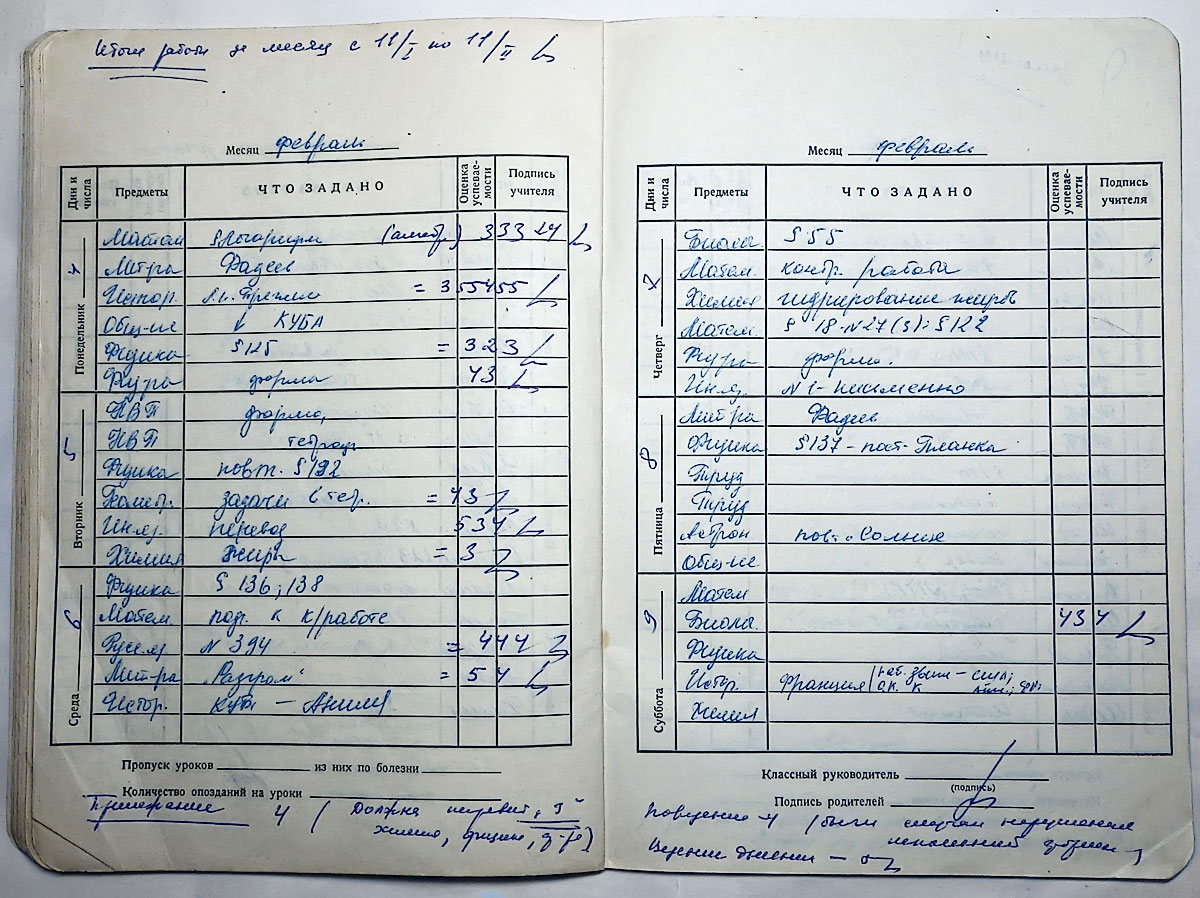 Итоги работы за месяц с 11/I по 11/II
Месяц февраль
Дни и числа Предметы ЧТО ЗАДАНО Оценка успевае-мости Подпись учителя
Понедельник 4
Матем § Логарифм (алгебр.) 333 24
Лит-ра Фадеев
Истор. = 355455
Общ-ие КУБА
Физика § 125 = 323
Физ-ра форма 43
Вторник 5
НВП форма,
НВП тетрадь
Физика повт. § 132
Геометр. задачи в тет. = 43
Ин.яз. перевод 534
Химия Жиры = 3
Среда 6
Физика § 136, 138
Матем. под. к к/работе
Русс.яз N 394 = 444
Лит-ра "Разгром" = 54
Истор. Куба – Англия
Пропуск уроков из них по болезни
Количество опозданий на уроки
Прилежание 4 (Должна исправит „3"
химия, физике,
Месяц февраль
Дни и числа Предметы ЧТО ЗАДАНО Оценка успевае-мости Подпись учителя
Четверг 7
Биолог. § 55
Матем. контр. работа
Химия гидрирование жиров
Матем. § 18 N 27(3); § 122
Физ-ра форма.
Ин.яз. N 1 – письменно
Пятница 8
Лит-ра Фадеев
Физика § 137 – пост. Планка
Труд
Труд
Астрон повт. Солнце
Общ-ие
Суббота 9
Матем
Биолог. 43 4
Физика
Истор. Франция
Химия
Классный руководитель
(подпись)
Подпись родителей
Поведение 4 (были случаи нарушения
школьной формы)
Ведение дневника – 5